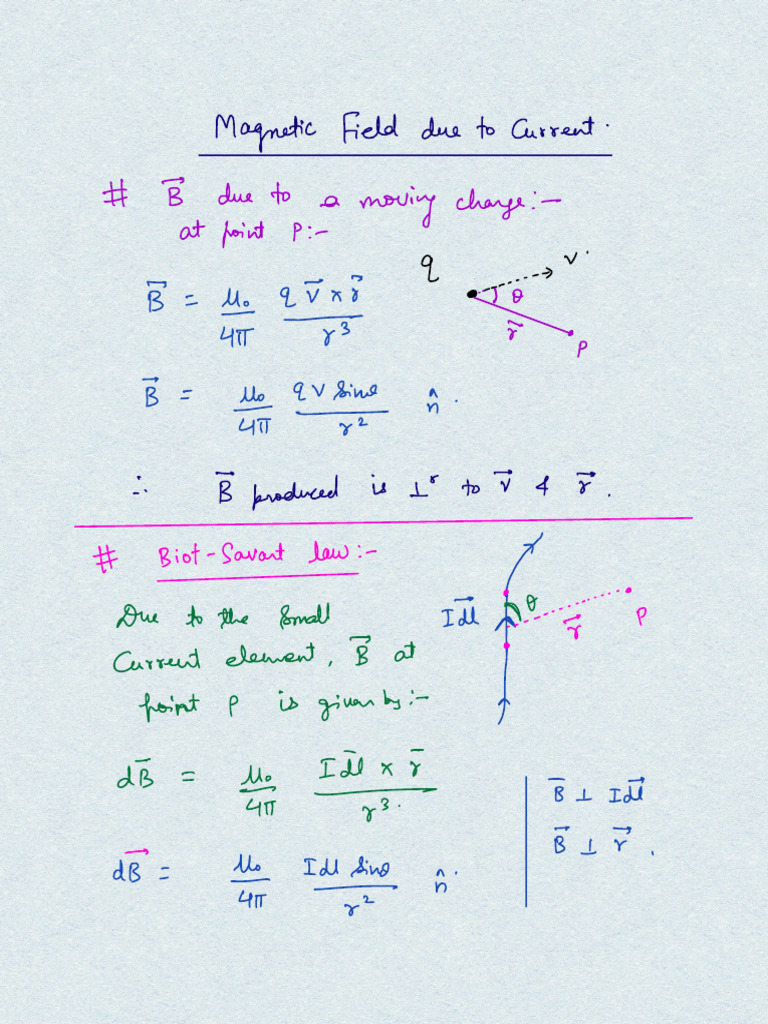 Magnetic Field due to Current.
# B⃗ due to a moving charge:-
at point P:-
q v.
θ
r⃗
P
B⃗ = μ₀/4π q v⃗ × r⃗/r³
B⃗ = μ₀/4π q v sinθ/r² n̂.
∴ B⃗ produced is ⊥ʳ to v⃗ & r⃗.
# Biot-Savart law:-
Due to the small
Current element, B⃗ at
point P is given by:-
Idl⃗ θ
r⃗ P
dB⃗ = μ₀/4π Idl⃗ × r⃗/r³.
dB⃗ = μ₀/4π Idl sinθ/r² n̂.
B⃗ ⊥ Idl⃗
B⃗ ⊥ r⃗.